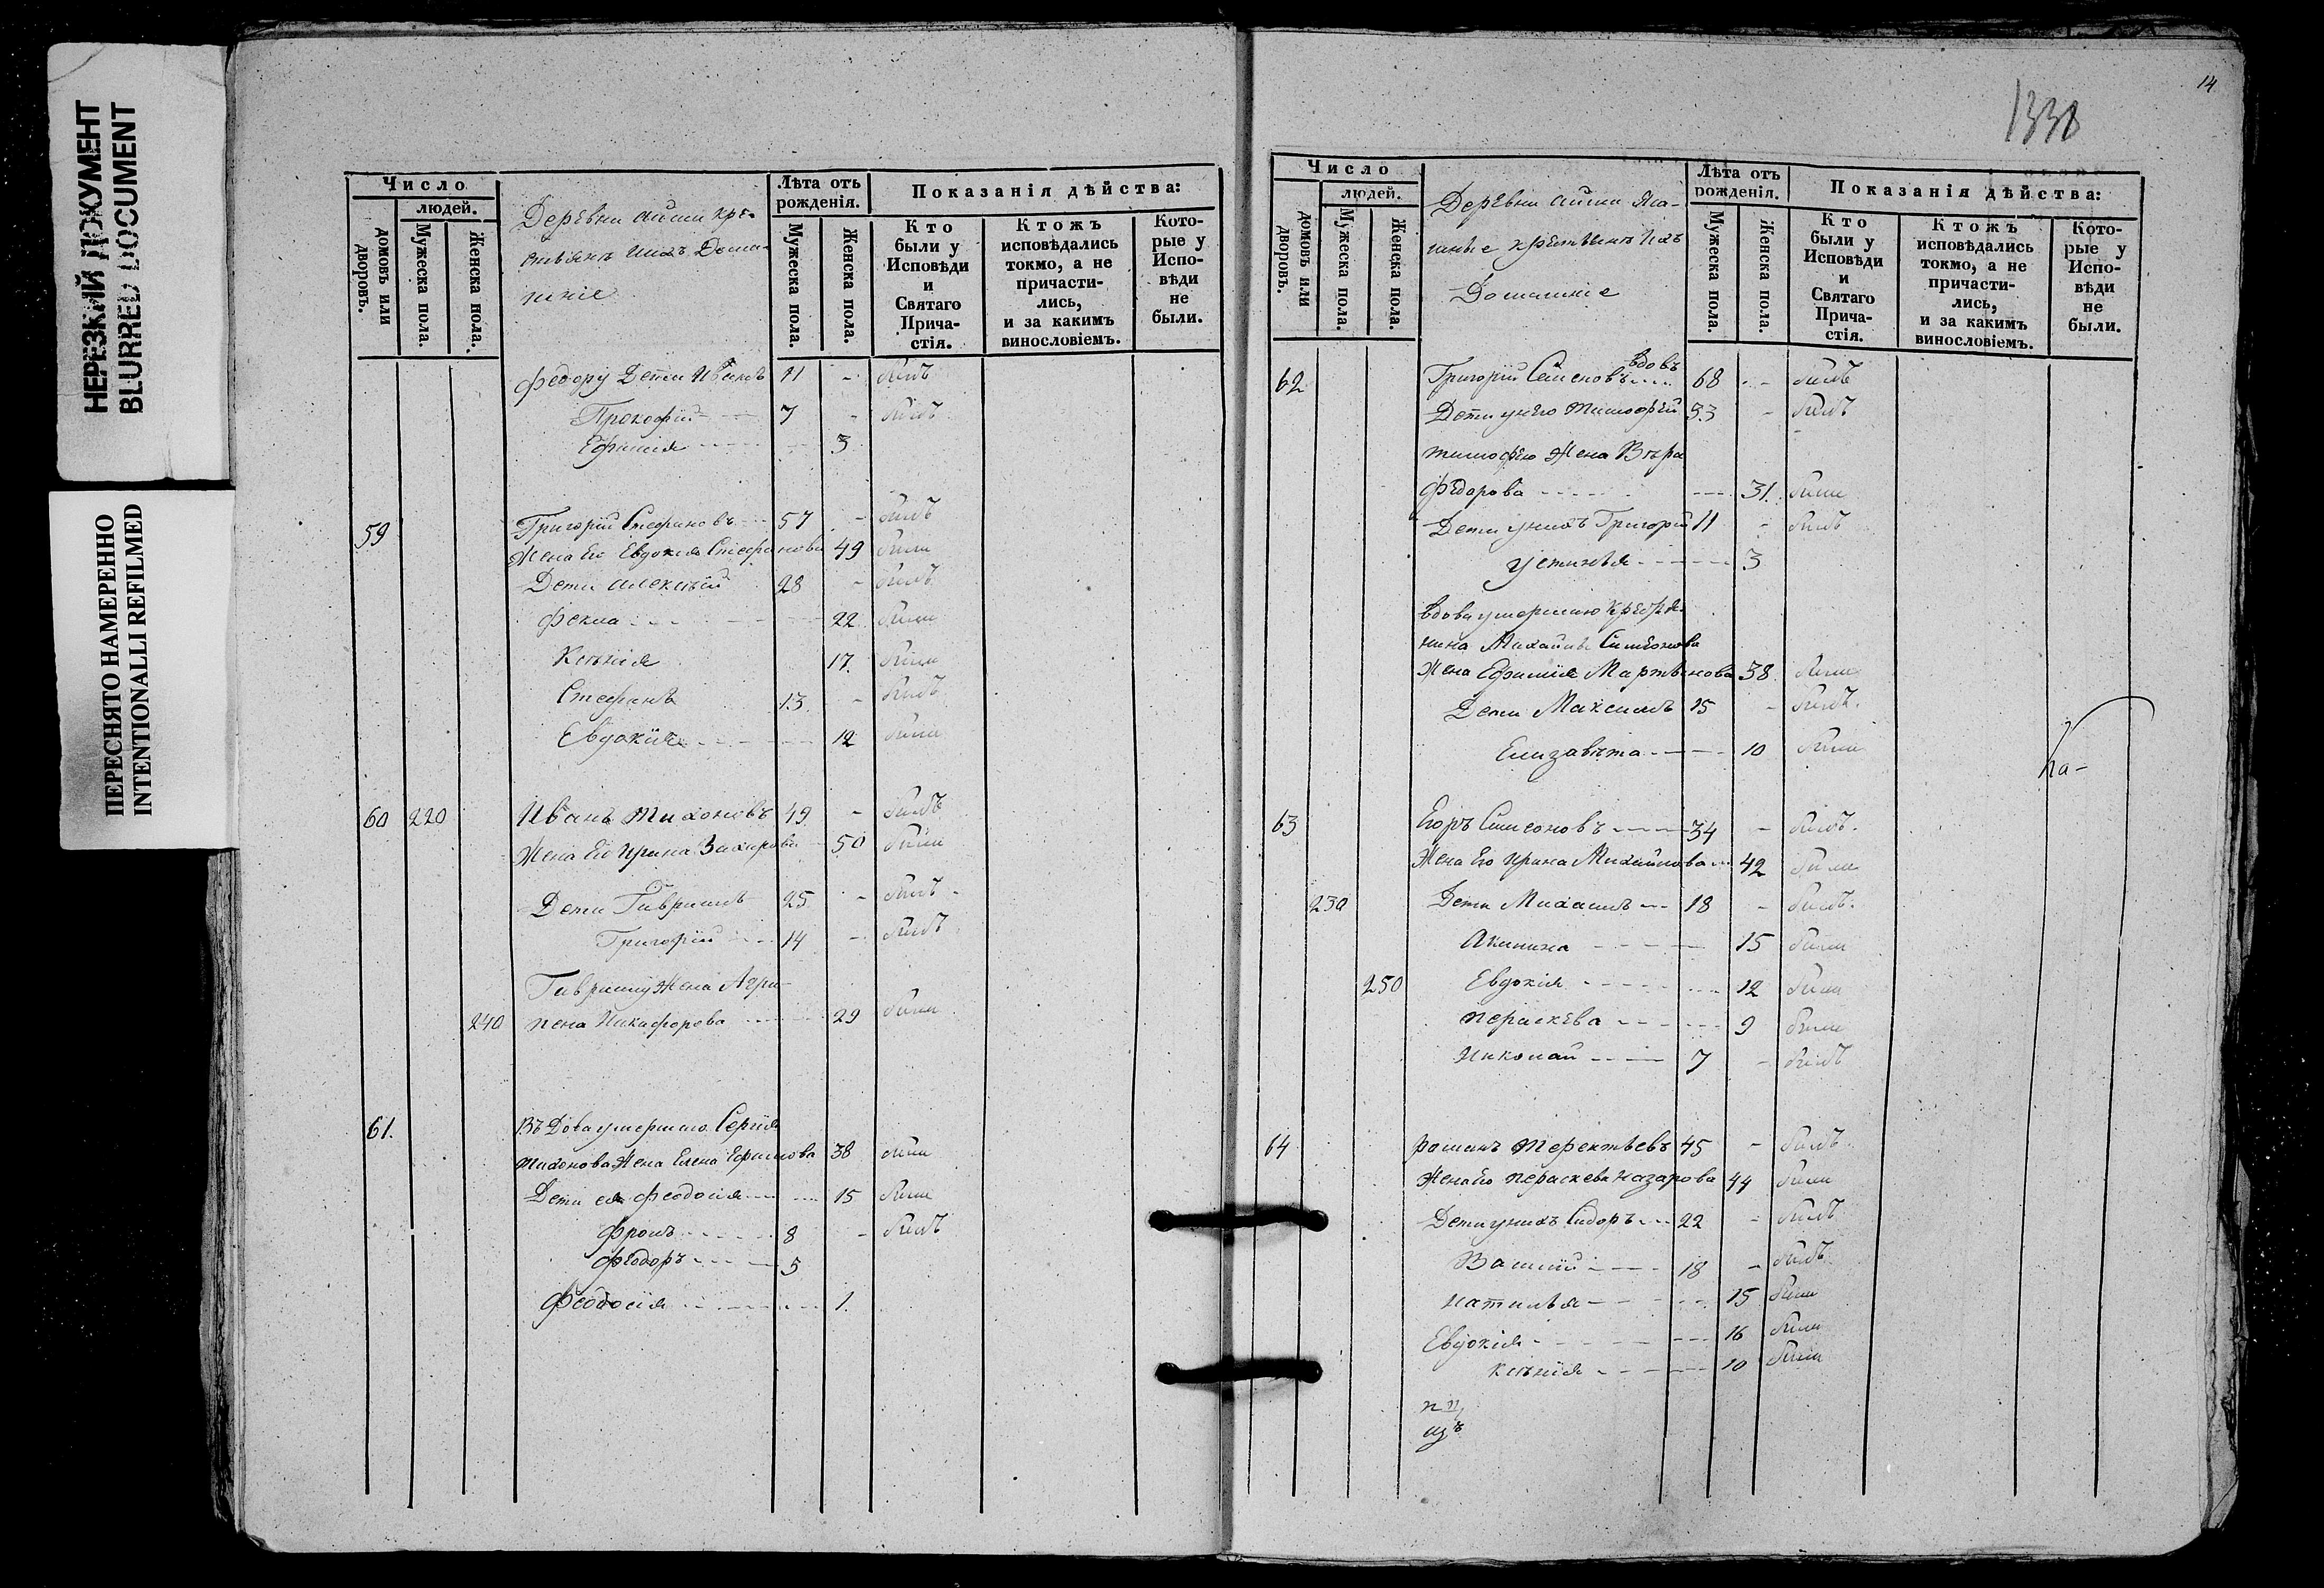 НЕРЕЗКИЙ ДОКУМЕНТ
BLURRED DOCUMENT
ПЕРЕСНЯТО НАМЕРЕННО
INTENTIONALLI REFILMED
Число
людей.
домовъ или дворовъ.
Мужеска пола.
Женска пола.
Деревни
кре-
стьянъ ихъ Дома-
шніе
Лѣта отъ рожденія.
Мужеска пола.
Женска пола.
Показанія дѣйства:
Кто были у Исповѣди и Святаго Прича-стія.
Ктожъ исповѣдались токмо, а не причасти-лись, и за какимъ винословіемъ.
Кото-рые у Испо-вѣди не были.
Федору Дети Иванъ 11 - былъ
Прокофій 7 - былъ
Ефимія 3
59 Григорій Стефановъ 57 - былъ
Жена Его Евдокия Стефанова 49 были
Дети Алексѣй 28 - былъ
Фекла 22 были
Ксѣнія 17 были
Стефанъ 13 - былъ
Евдокія 12 были
60 220 Иванъ Тихоновъ 49 - былъ
Жена Его Ирина Захарова 50 были
Дети Гаврилъ 25 - былъ
Григорій 14 - былъ
Гаврилу Жена Агри-
240 пена Никафорова 29 были
61. Въдова умершаго Сергія
Тихонова Жена Елена Ефимова 38 были
Дети ея Феодосія 15 были
Фролъ 8 - былъ
Федоръ 5
Феодосія 1.
14
1338
Число
людей.
домовъ или дворовъ.
Мужеска пола.
Женска пола.
Деревни
крестьянъ ихъ
Домашніе
Лѣта отъ рожденія.
Мужеска пола.
Женска пола.
Показанія дѣйства:
Кто были у Исповѣди и Святаго Прича-стія.
Ктожъ исповѣдались токмо, а не причасти-лись, и за какимъ винословіемъ.
Кото-рые у Испо-вѣди не были.
62 Григорій Семеновъ вдовъ 68 - былъ
Дети унего Тимофей 33 - былъ
Тимофею Жена Вѣра
Федорова 31. были
Дети унихъ Григорій 11 - былъ
Устинья 3
вдова умершаго
Михайлы Симеонова
Жена Ефимія Мартынова 38 были
Дети Максимъ 15 - былъ.
Елизавѣта 10 были
ка-
63 Егоръ Симеоновъ 34 - былъ.
Жена Его Ирина Михайлова 42 были
230 Дети Михаилъ 18 - былъ.
Акилина 15 были
250 Евдокія 12 были
Пераскева 9 были
Николай 7 - былъ
64 Романъ Терентьевъ 45 - былъ
Жена Его Пераскева Назарова 44 были
Дети унихъ Сидоръ 22 - былъ
Василій 18 - былъ
Наталья 15 были
Евдокія 16 были
Ксѣнія 10 были